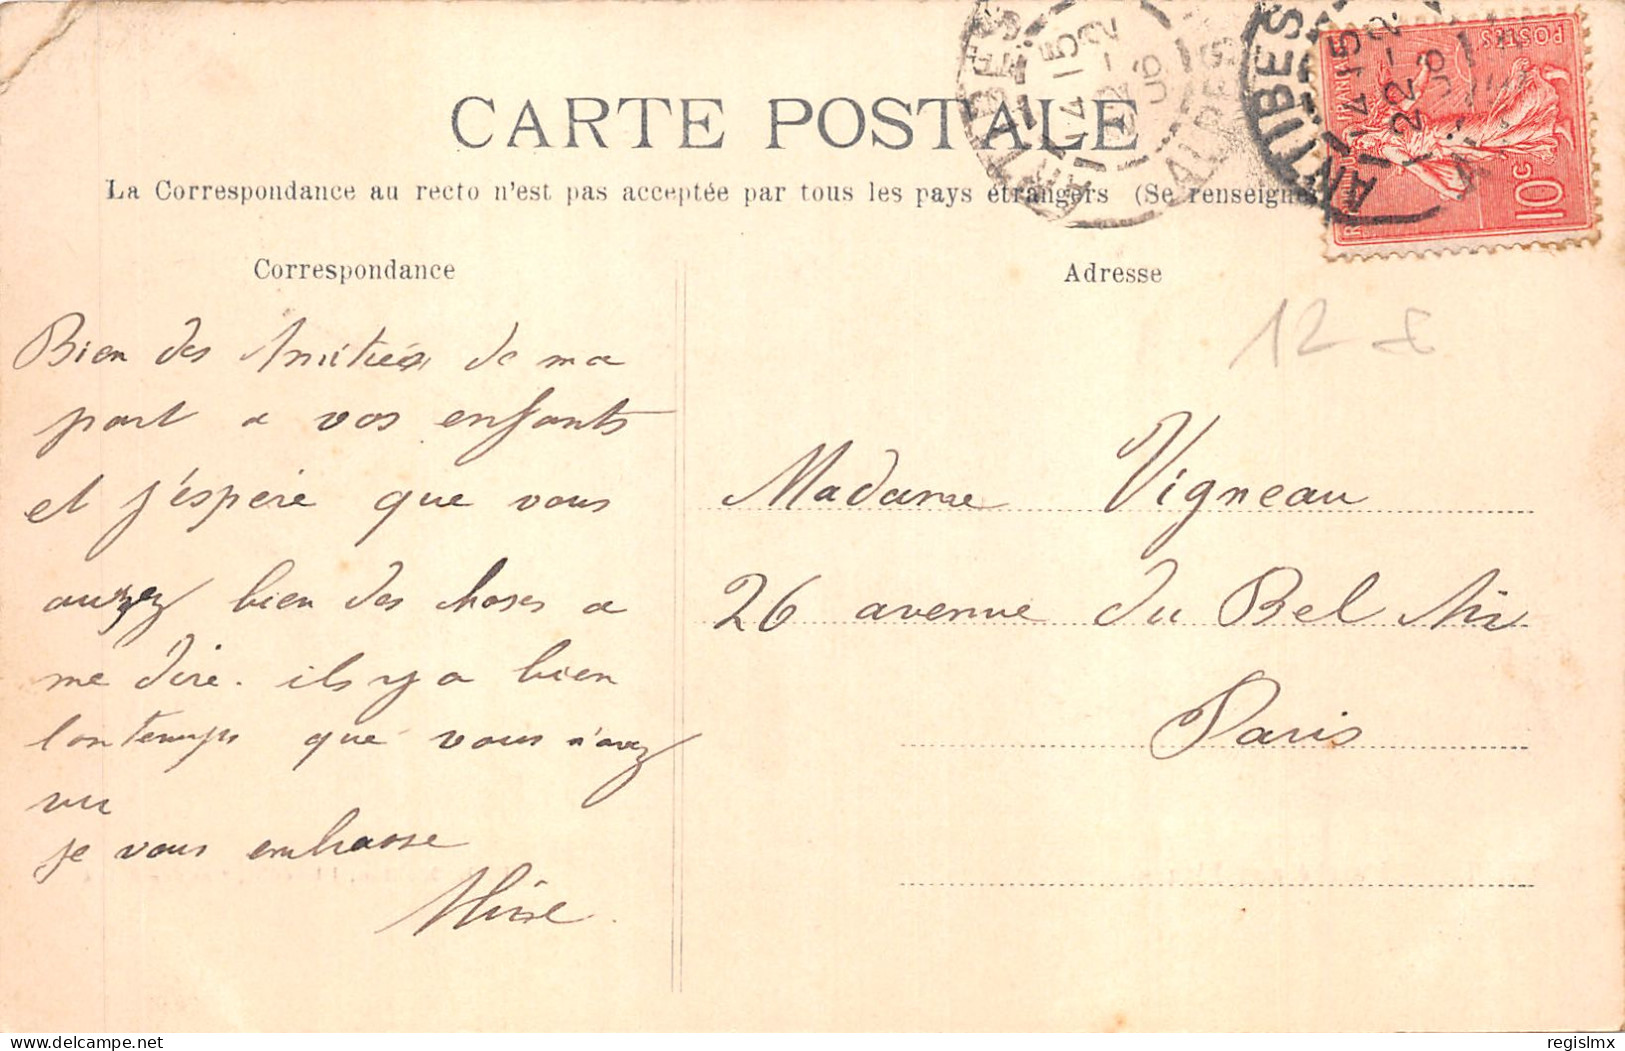 CARTE POSTALE
La Correspondance au recto n'est pas acceptée par tous les pays étrangers (Se renseigne
Correspondance
Adresse
ANTIBES
14 15
22-2
06
ALPES
ANTIBES
14 15
22-2
06
POSTES
10 c
12 - €
Bien des Amitiés de ma
part a vos enfants
et j'éspère que vous
aurez bien des choses a
me dire. ils y a bien
lontemps que vous n'avez
vu
je vous embrasse
Madame Vigneau
26 avenue du Bel Air
Paris
delcampe.net
regislmx